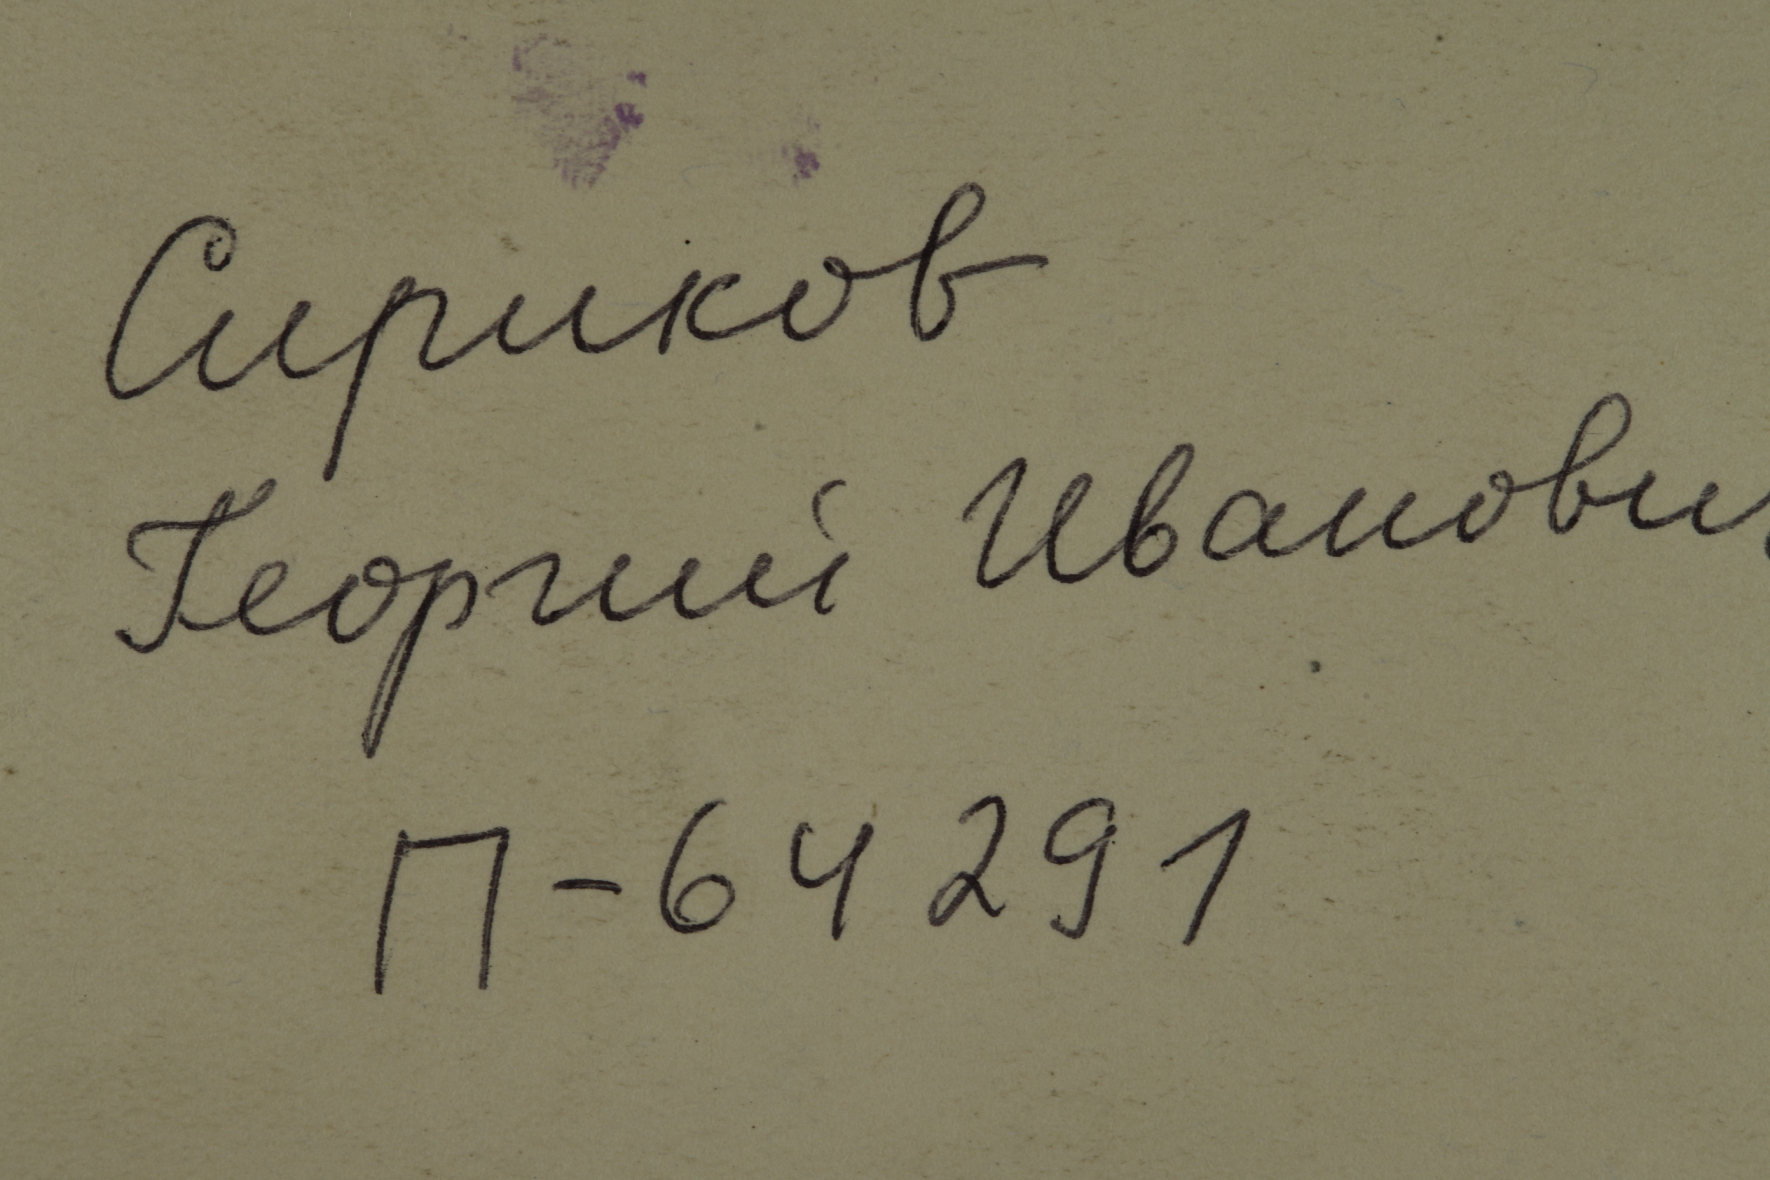 Сириков
Георгий Иванови
П-64291